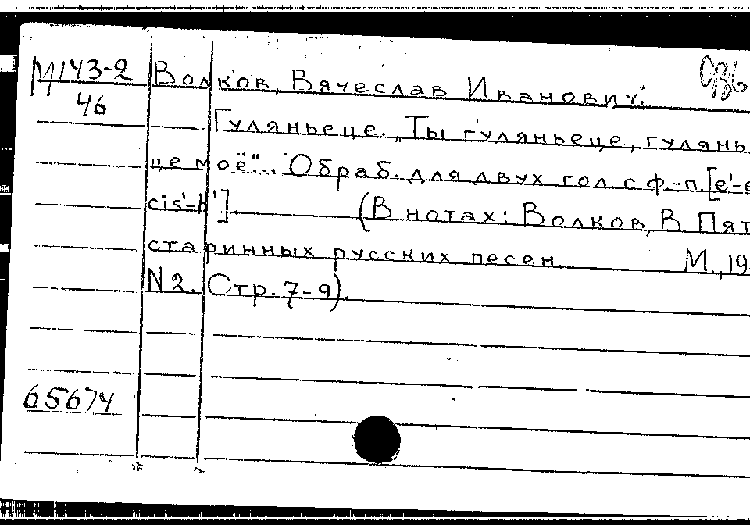 М143-2
46
Волков, Вячеслав Иванович.
Гуляньеце. „Ты гуляньеце, гулянь
це моё"... Обраб. для двух гол. с ф.-п. [e'-
cis'-h'] (В нотах: Волков, В. Пят
старинных русских песен. М., 19
N 2. Стр. 7-9).
65674